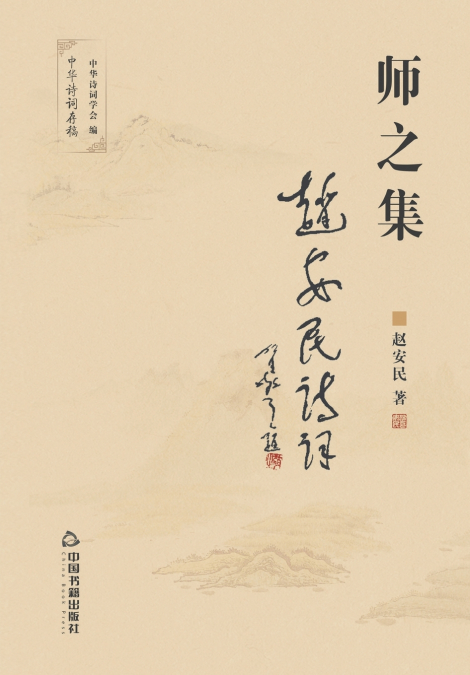 师之集
赵安民 著
趙安民诗词
中华诗词学会 编
中华诗词存稿
中国书籍出版社
China Book Press